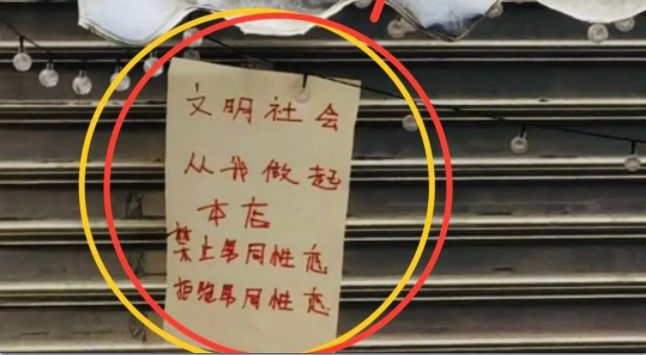 文明社会
从我做起
本店
禁止男同性恋
拒绝男同性恋